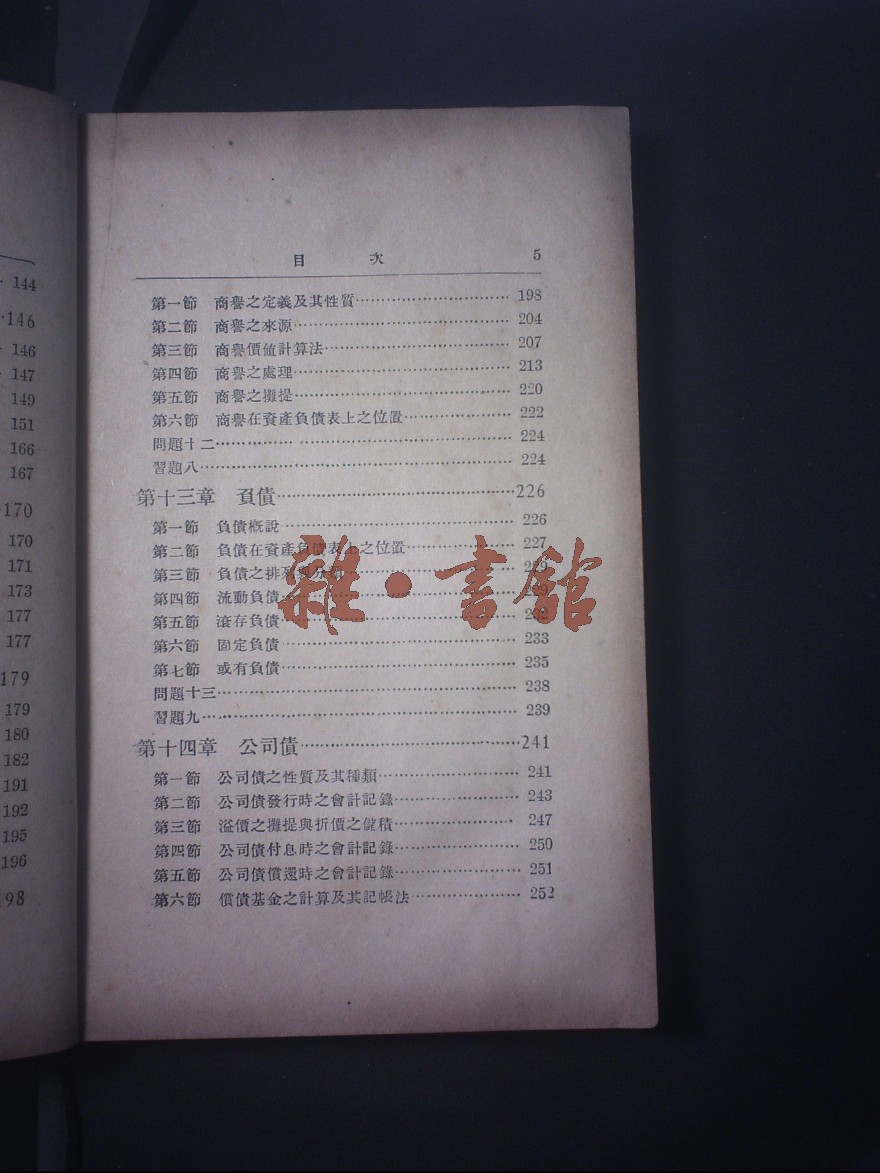 144
146
146
147
149
151
166
167
170
170
171
173
177
177
179
179
180
182
191
192
195
196
198
目 次 5
第一節 商譽之定義及其性質 198
第二節 商譽之來源 204
第三節 商譽價值計算法 207
第四節 商譽之處理 213
第五節 商譽之攤提 220
第六節 商譽在資產負債表上之位置 222
問題十二 224
習題八 224
第十三章 負債 226
第一節 負債概說 226
第二節 負債在資產負債表上之位置 227
第三節 負債之排列與分類 229
第四節 流動負債 229
第五節 滾存負債 232
第六節 固定負債 233
第七節 或有負債 235
問題十三 238
習題九 239
第十四章 公司債 241
第一節 公司債之性質及其種類 241
第二節 公司債發行時之會計記錄 243
第三節 溢價之攤提與折價之儲積 247
第四節 公司債付息時之會計記錄 250
第五節 公司債償還時之會計記錄 251
第六節 償債基金之計算及其記帳法 252
雜·書館